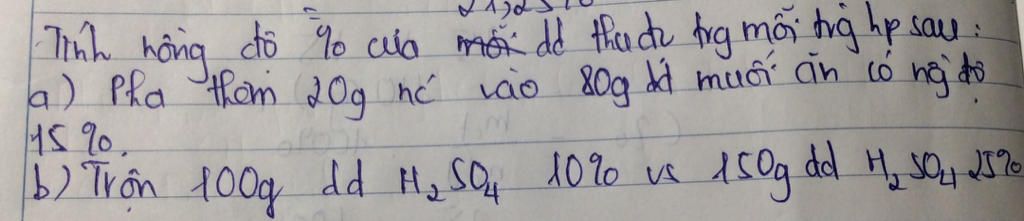 = 21,25%
Tính nồng độ % của mỗi dd thu đc trg mỗi trg hp sau :
a) Pha thêm 20g nc vào 80g dd muối ăn có ng độ
15 %.
b) Trộn 100g dd H₂SO₄ 10% vs 150g dd H₂SO₄ 25%